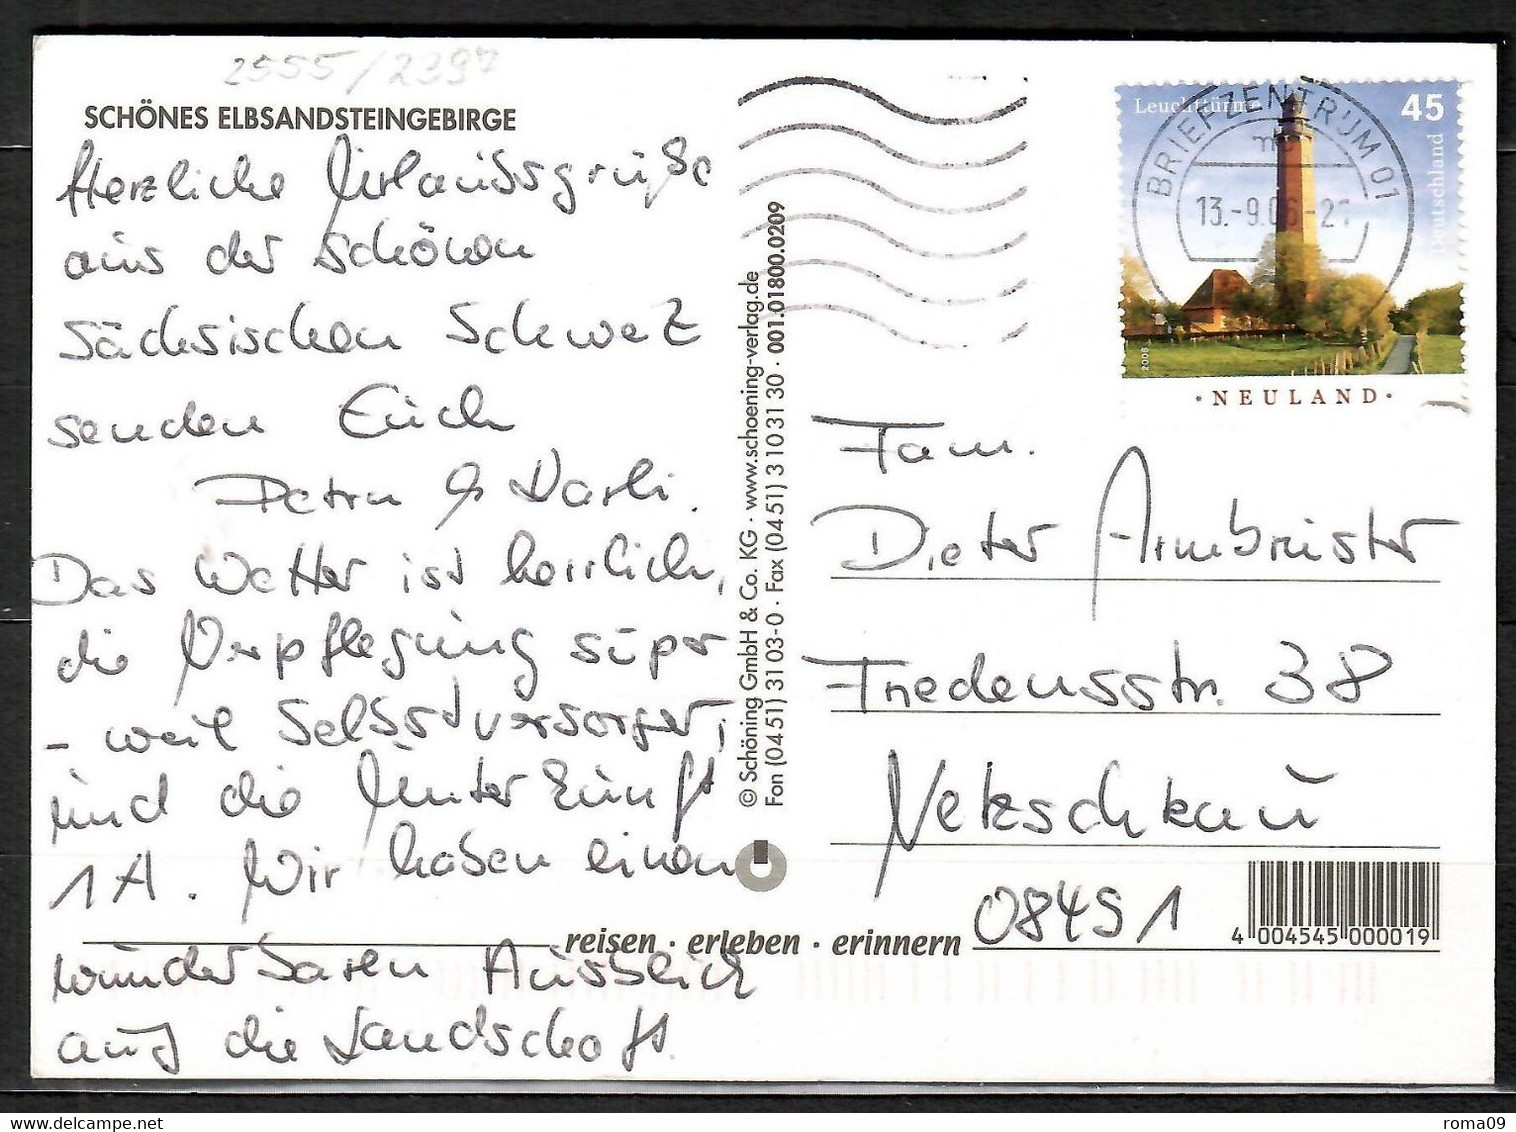 2555/2397
SCHÖNES ELBSANDSTEINGEBIRGE
Herzliche Urlaubsgrüße
aus der schönen
Sächsischen Schweiz
senden Euch
Petra & Karli.
Das Wetter ist herrlich,
die Verpflegung super
- weil Selbstversorger,
und die Unterkunft
1A. Wir haben einen
wunderbaren Ausblick
auf die Landschaft.
© Schöning GmbH & Co. KG · www.schoening-verlag.de
Fon (04 51) 31 03-0 · Fax (04 51) 3 10 31 30 · 001.01800.0209
reisen · erleben · erinnern
Leuchttürme
45
Deutschland
2006
·NEULAND·
BRIEFZENTRUM 01
13.-9.06-21
Fam.
Dieter Armbrüster
Friedensstr. 38
Netzschkau
08491
4 004545 000019
roma09